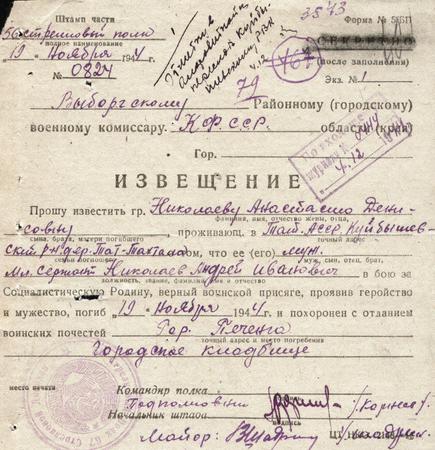 Штамп части
56 стрелковый полк
полное наименование
19 Ноября 1944
№ 0824
3543
Форма № 5/БП
167
(после заполнения)
Экз. № 1
79
Выборгскому Районному (городскому)
военному комиссару. К.Ф.ССР. области (края)
Гор.
4.12
ИЗВЕЩЕНИЕ
Прошу известить гр. Николаеву Анастасию Дени-
фамилия, имя, отчество жены, отца,
совну, проживающ. в Тат. АССР. Куйбышев-
сына, брата, матери погибшего точный адрес
ский р-н. дер. Тат-Тахтала том, что ее (его) муж.
муж, сын, отец, брат,
Мл. сержант Николаев Андрей Иванович в бою за
должность, звание, фамилия, имя и отчество
Социалистическую Родину, верный воинской присяге, проявив геройство
и мужество, погиб 19 Ноября 1944 и похоронен с отданием
воинских почестей Гор. Печенга
точный адрес и место погребения
Городское кладбище
место печати
Командир полка
Подполковник
Начальник штаба
подпись
Майор: